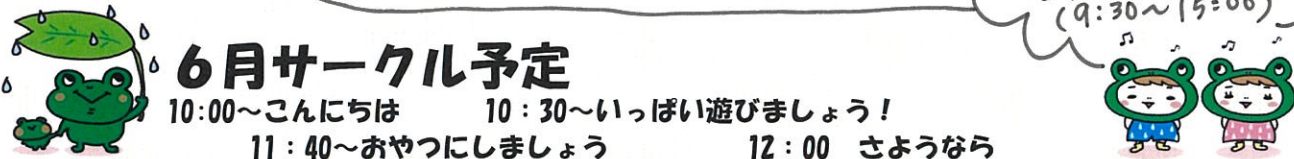 (9:30～15:00)
6月サークル予定
10:00～こんにちは 10：30～いっぱい遊びましょう！
11：40～おやつにしましょう 12：00 さようなら